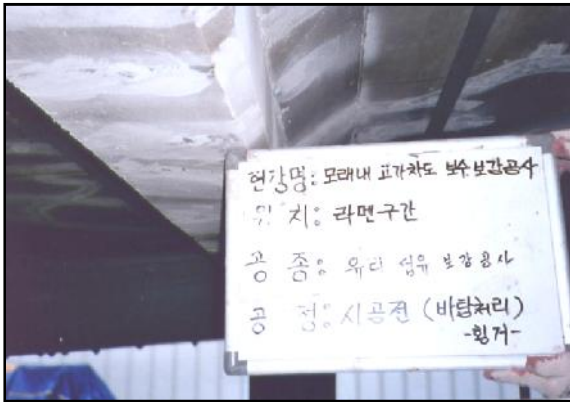 현장명: 모래내 고가차도 보수보강공사
위 치: 라멘구간
공 종: 유리 섬유 보강공사
공 정: 시공전 (바탕처리)
-횡거-